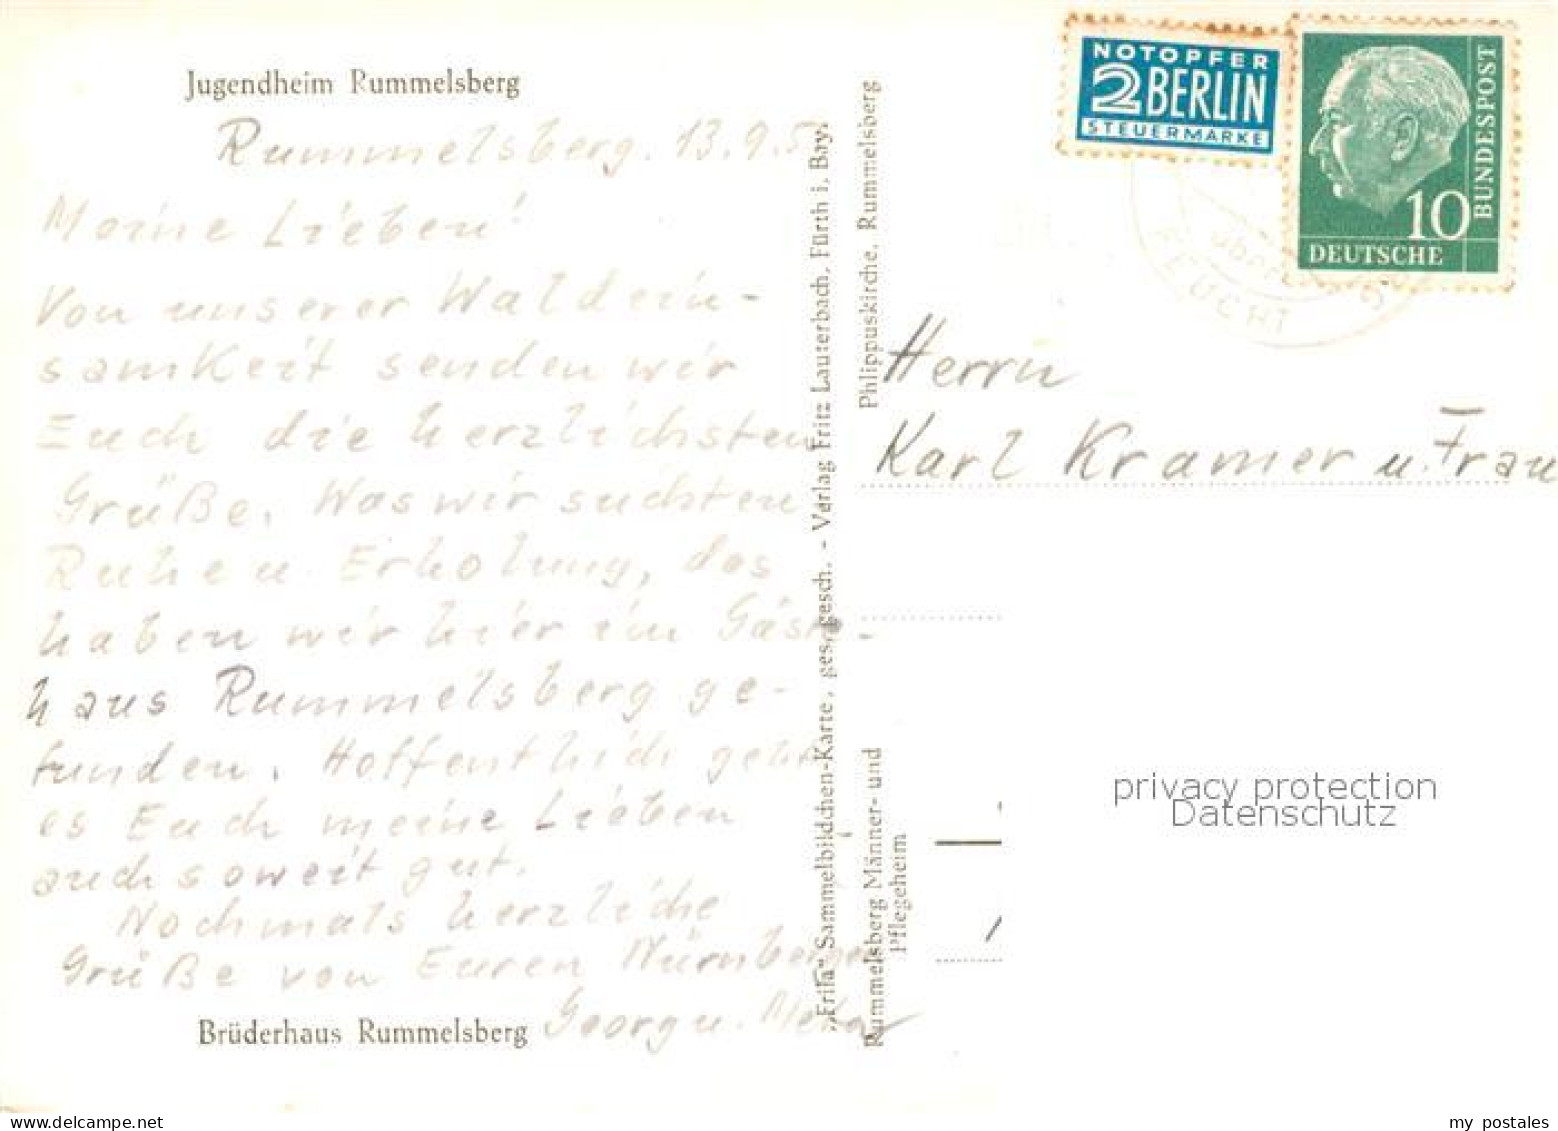 Jugendheim Rummelsberg
Rummelsberg. 13.9.5
Meine Lieben!
Von unserer Waldein-
samkeit senden wir
Euch die herzlichsten
Grüße. Was wir suchten
Ruhe u. Erholung, das
haben wir hier im Gäste-
haus Rummelsberg ge-
funden. Hoffentlich geht
es Euch meine Lieben
auch soweit gut.
Nochmals herzliche
Grüße von Euren Nürnberger
Georg u.
Brüderhaus Rummelsberg
„Frila" Sammelbildchen-Karte, ges. gesch. - Verlag Fritz Lauterbach, Fürth i. Bay.
Phlippuskirche, Rummelsberg
Rummelsberg Männer- und
Pflegeheim
NOTOPFER
2 BERLIN
STEUERMARKE
10
DEUTSCHE
BUNDESPOST
über
FEUCHT
Herrn
Karl Kramer u. Frau
privacy protection
Datenschutz
my postales